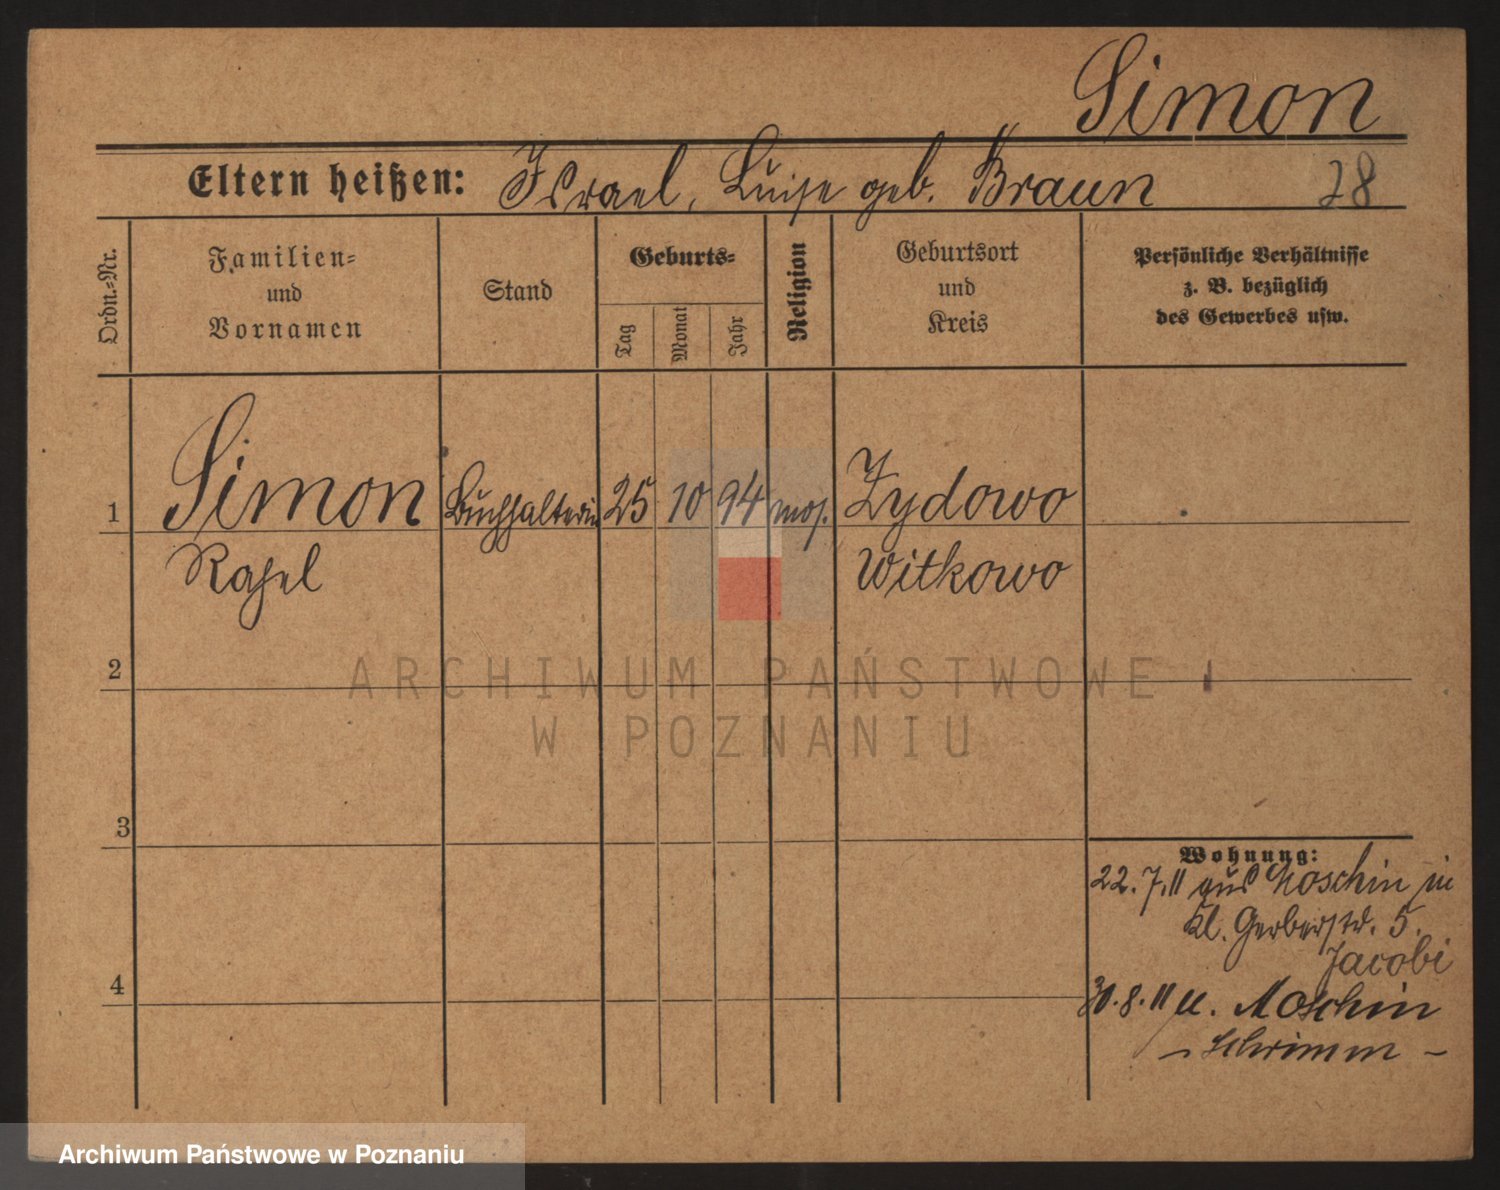 Simon
Eltern heißen: Israel, Luise geb. Braun
28
Ordn.-Nr.
Familien-
und
Vornamen
Stand
Geburts-
Tag
Monat
Jahr
Religion
Geburtsort
und
Kreis
Persönliche Verhältnisse
z. B. bezüglich
des Gewerbes usw.
1
Simon
Buchhalterin
25
10
94
mos.
Zydowo
Rahel
Witkowo
2
ARCHIWUM PAŃSTWOWE
W POZNANIU
3
Wohnung:
22.7.11 aus Moschin in
Kl. Gerberstr. 5.
Jacobi
4
30.8.11 n. Moschin
- Schrimm -
Archiwum Państwowe w Poznaniu